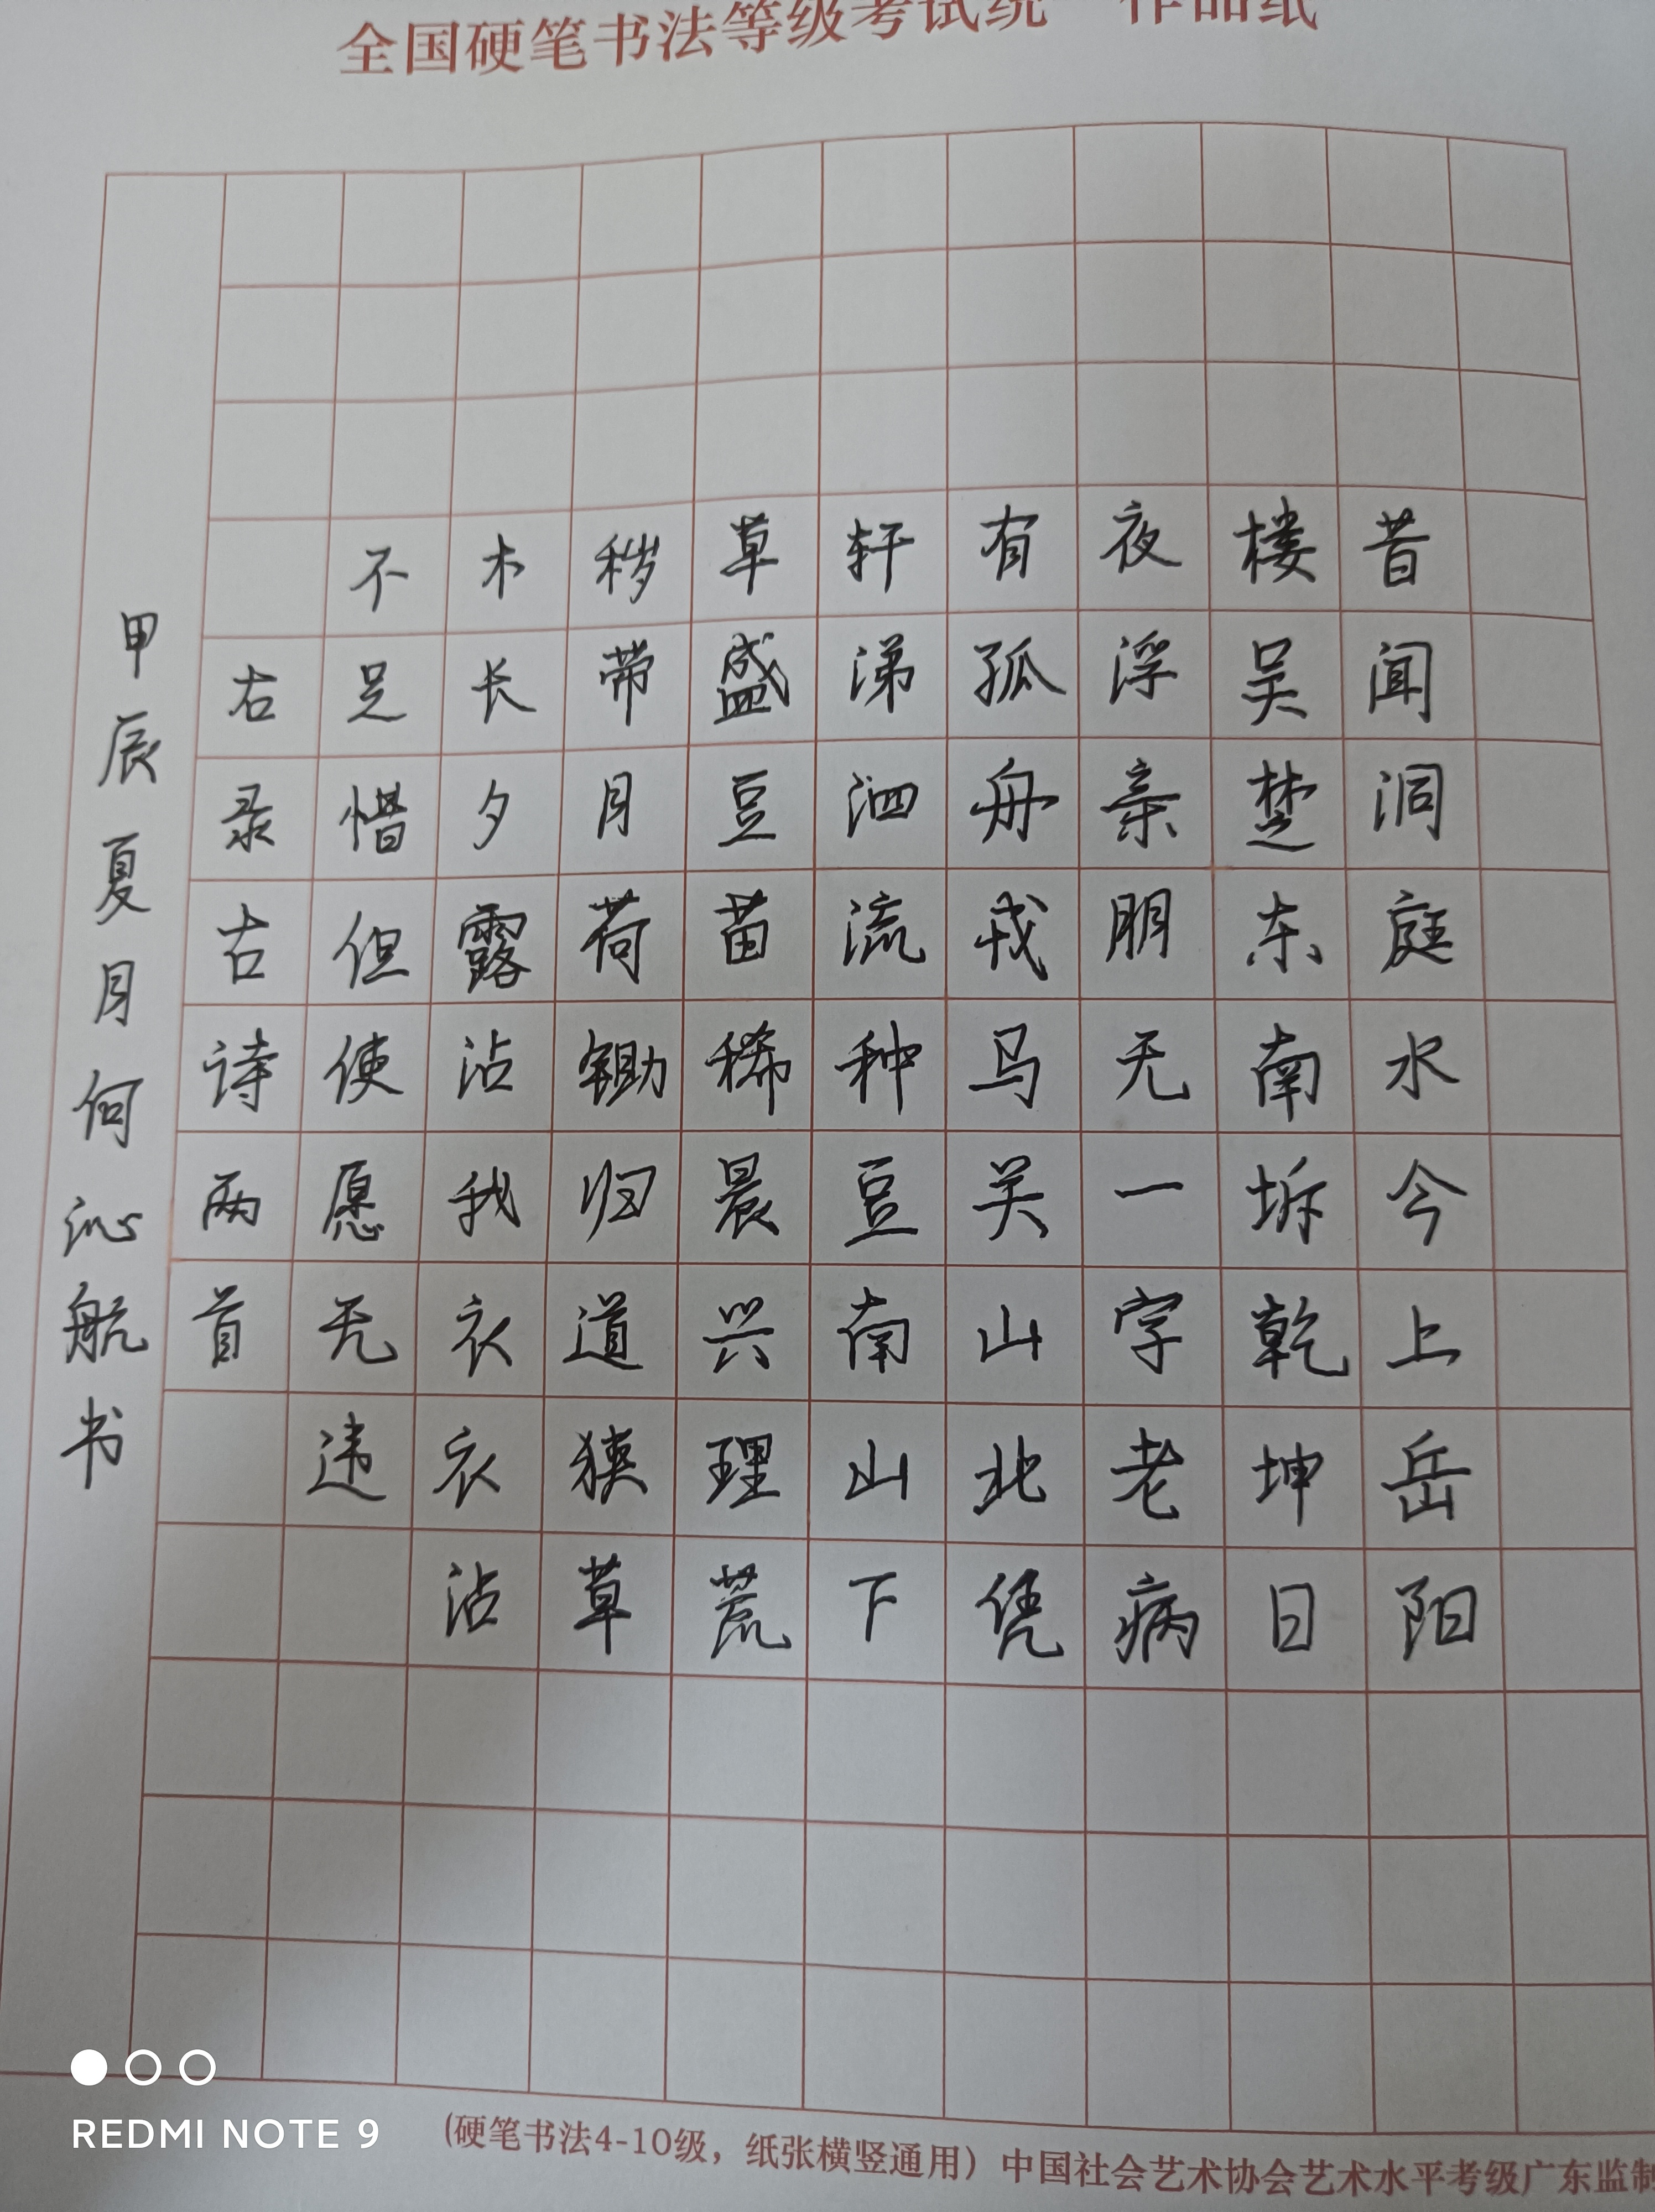 全国硬笔书法等级考试统 作品纸
昔闻洞庭水今上岳阳
楼吴楚东南坼乾坤日
夜浮亲朋无一字老病
有孤舟戎马关山北凭
轩涕泗流种豆南山下
草盛豆苗稀晨兴理荒
秽带月荷锄归道狭草
木长夕露沾我衣衣沾
不足惜但使愿无违
右录古诗两首
甲辰夏月何沁航书
(硬笔书法4-10级，纸张横竖通用）中国社会艺术协会艺术水平考级广东监制
REDMI NOTE 9